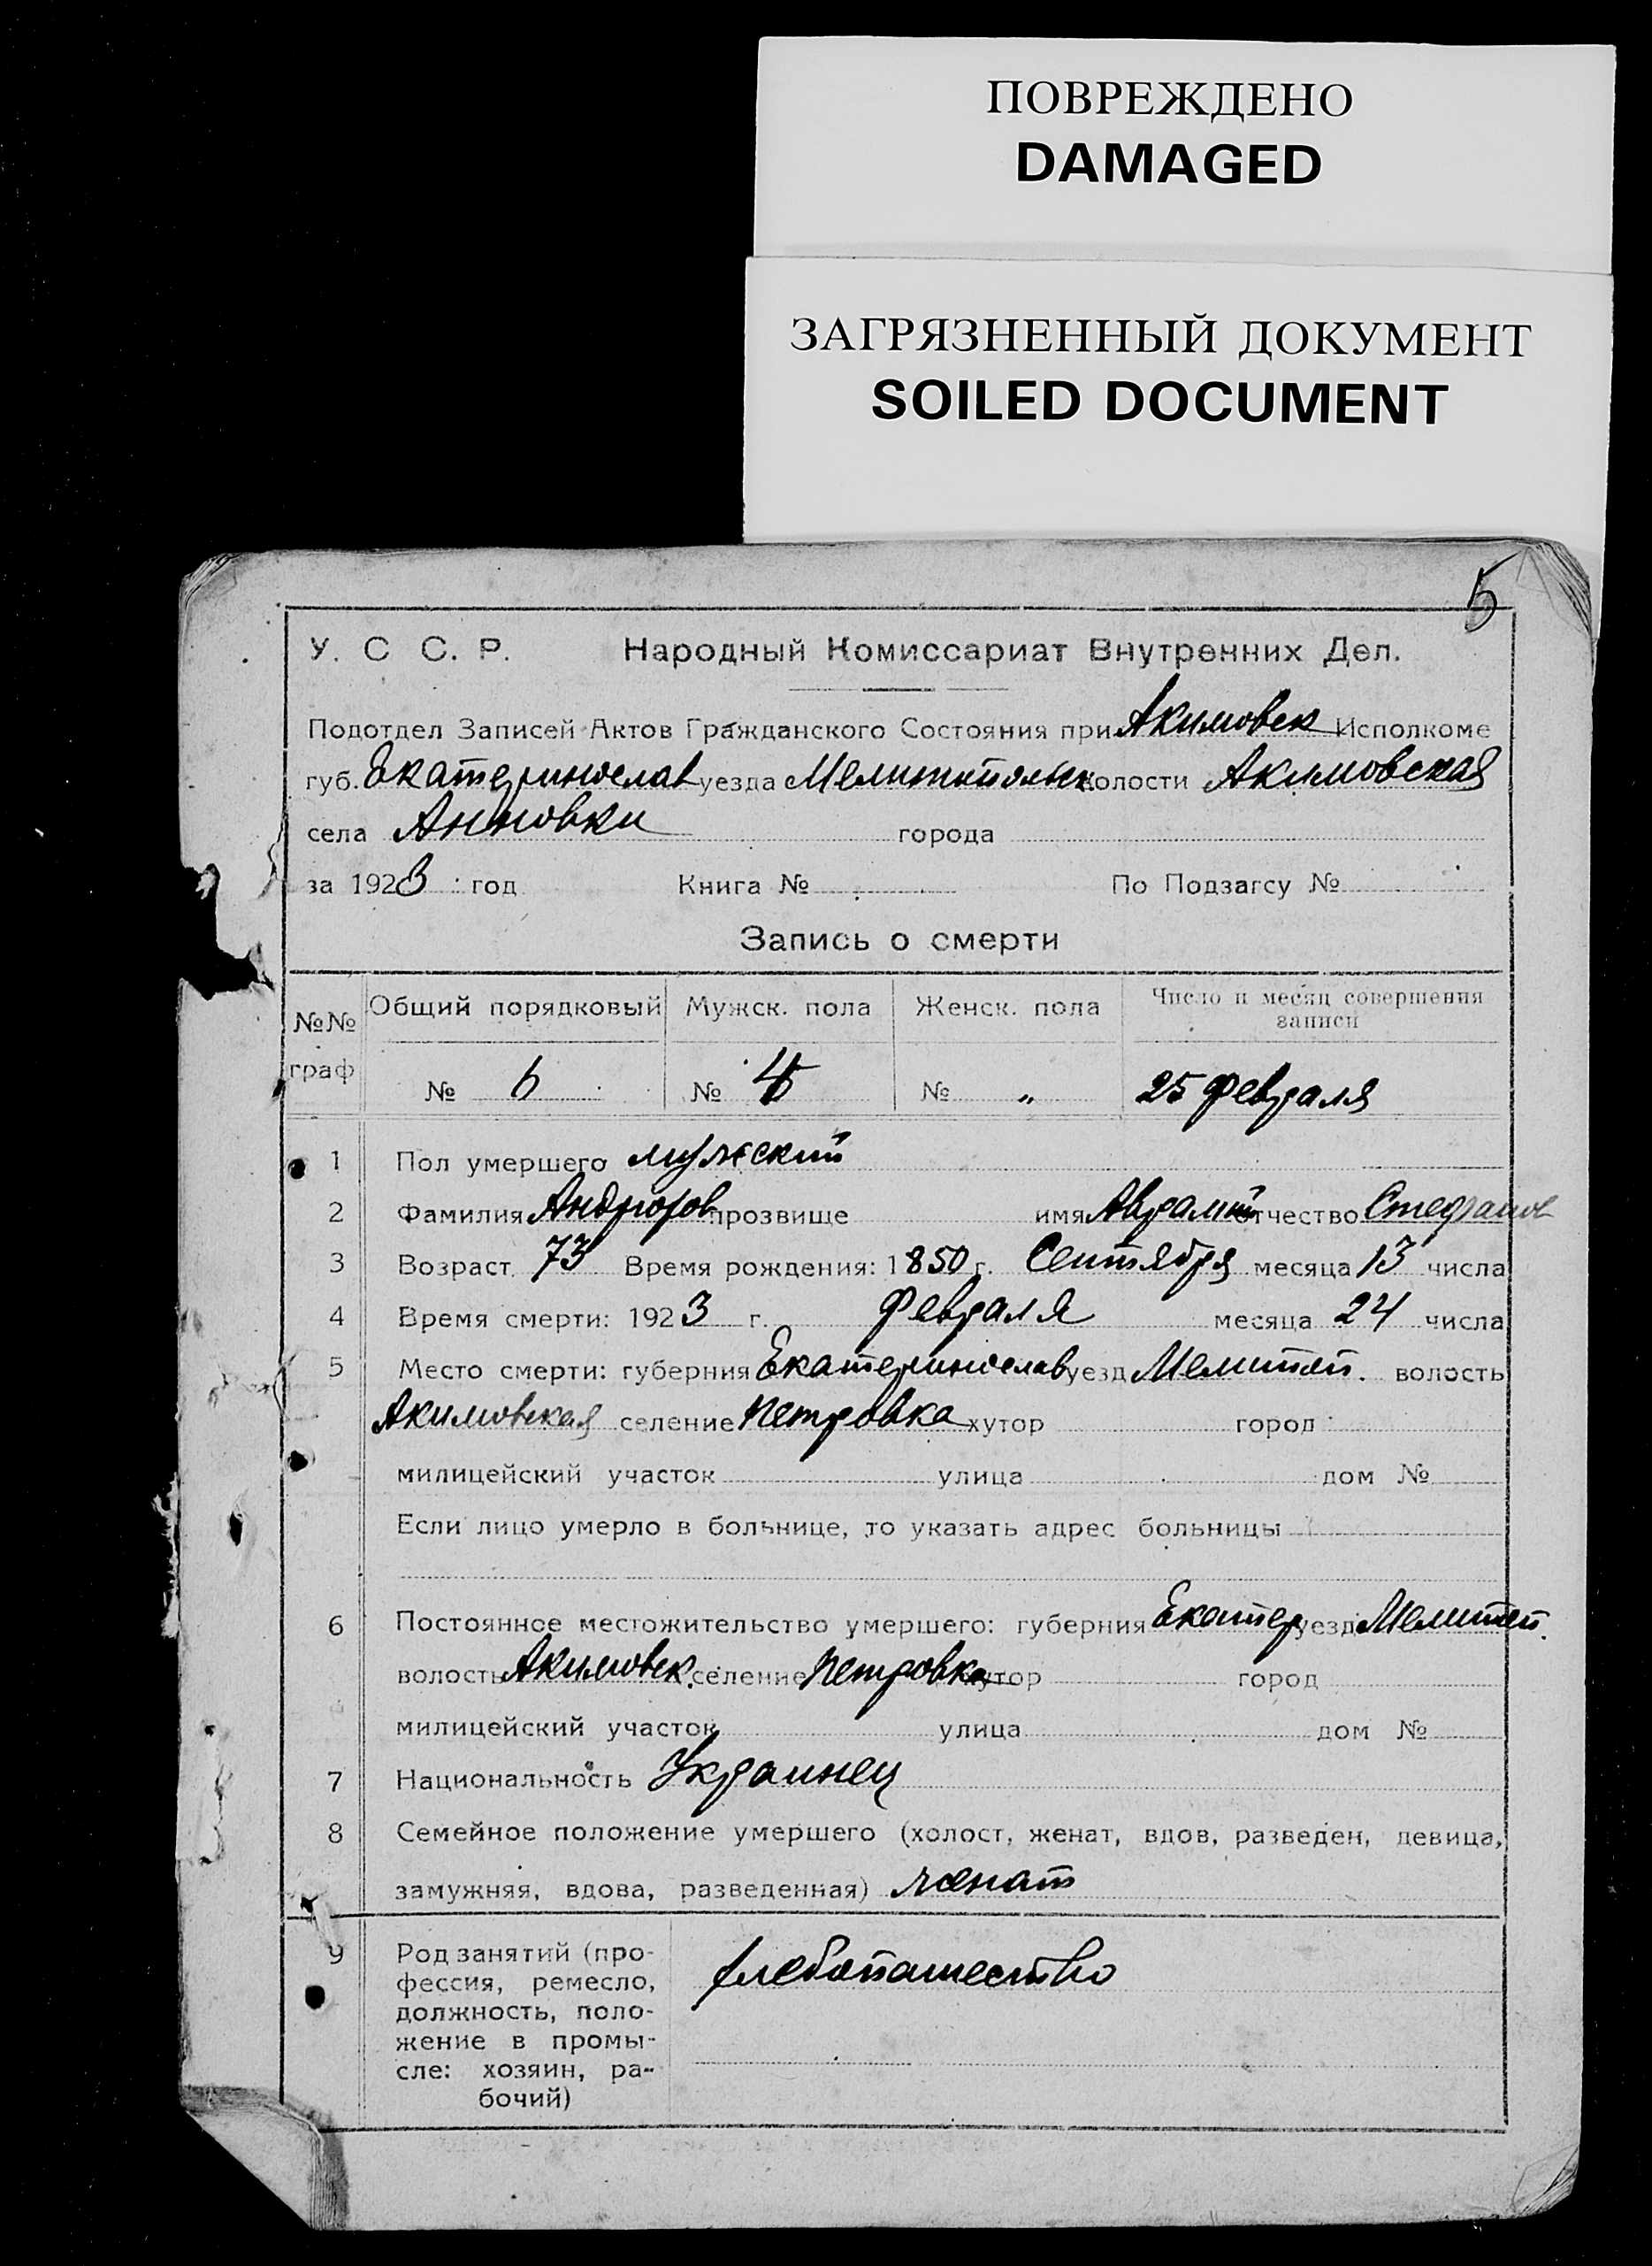 ПОВРЕЖДЕНО
DAMAGED
ЗАГРЯЗНЕННЫЙ ДОКУМЕНТ
SOILED DOCUMENT
5
У. С С. Р. Народный Комиссариат Внутренних Дел.
Подотдел Записей Актов Гражданского Состояния при Акимовск Исполкоме
губ. Екатеринослав уезда Мелитопольск волости Акимовская
села Анновки города
за 1923 год Книга № По Подзагсу №
Запись о смерти
№№ граф Общий порядковый Мужск. пола Женск. пола Число и месяц совершения записи
№ 6 № 4 № „ 25 февраля
1 Пол умершего мужский
2 Фамилия прозвище имя отчество Стефанов
3 Возраст 73 Время рождения: 1850 г. Сентября месяца 13 числа
4 Время смерти: 1923 г. февраля месяца 24 числа
5 Место смерти: губерния Екатеринослав уезд Мелитоп. волость
Акимовская селение Петровка хутор город
милицейский участок улица дом №
Если лицо умерло в больнице, то указать адрес больницы
6 Постоянное местожительство умершего: губерния Екатер уезд Мелитоп.
волость Акимовск. селение Петровка хутор город
милицейский участок улица дом №
7 Национальность Украинец
8 Семейное положение умершего (холост, женат, вдов, разведен, девица,
замужняя, вдова, разведенная) женат
9 Род занятий (про- хлебопашество
фессия, ремесло,
должность, поло-
жение в промы-
сле: хозяин, ра-
бочий)